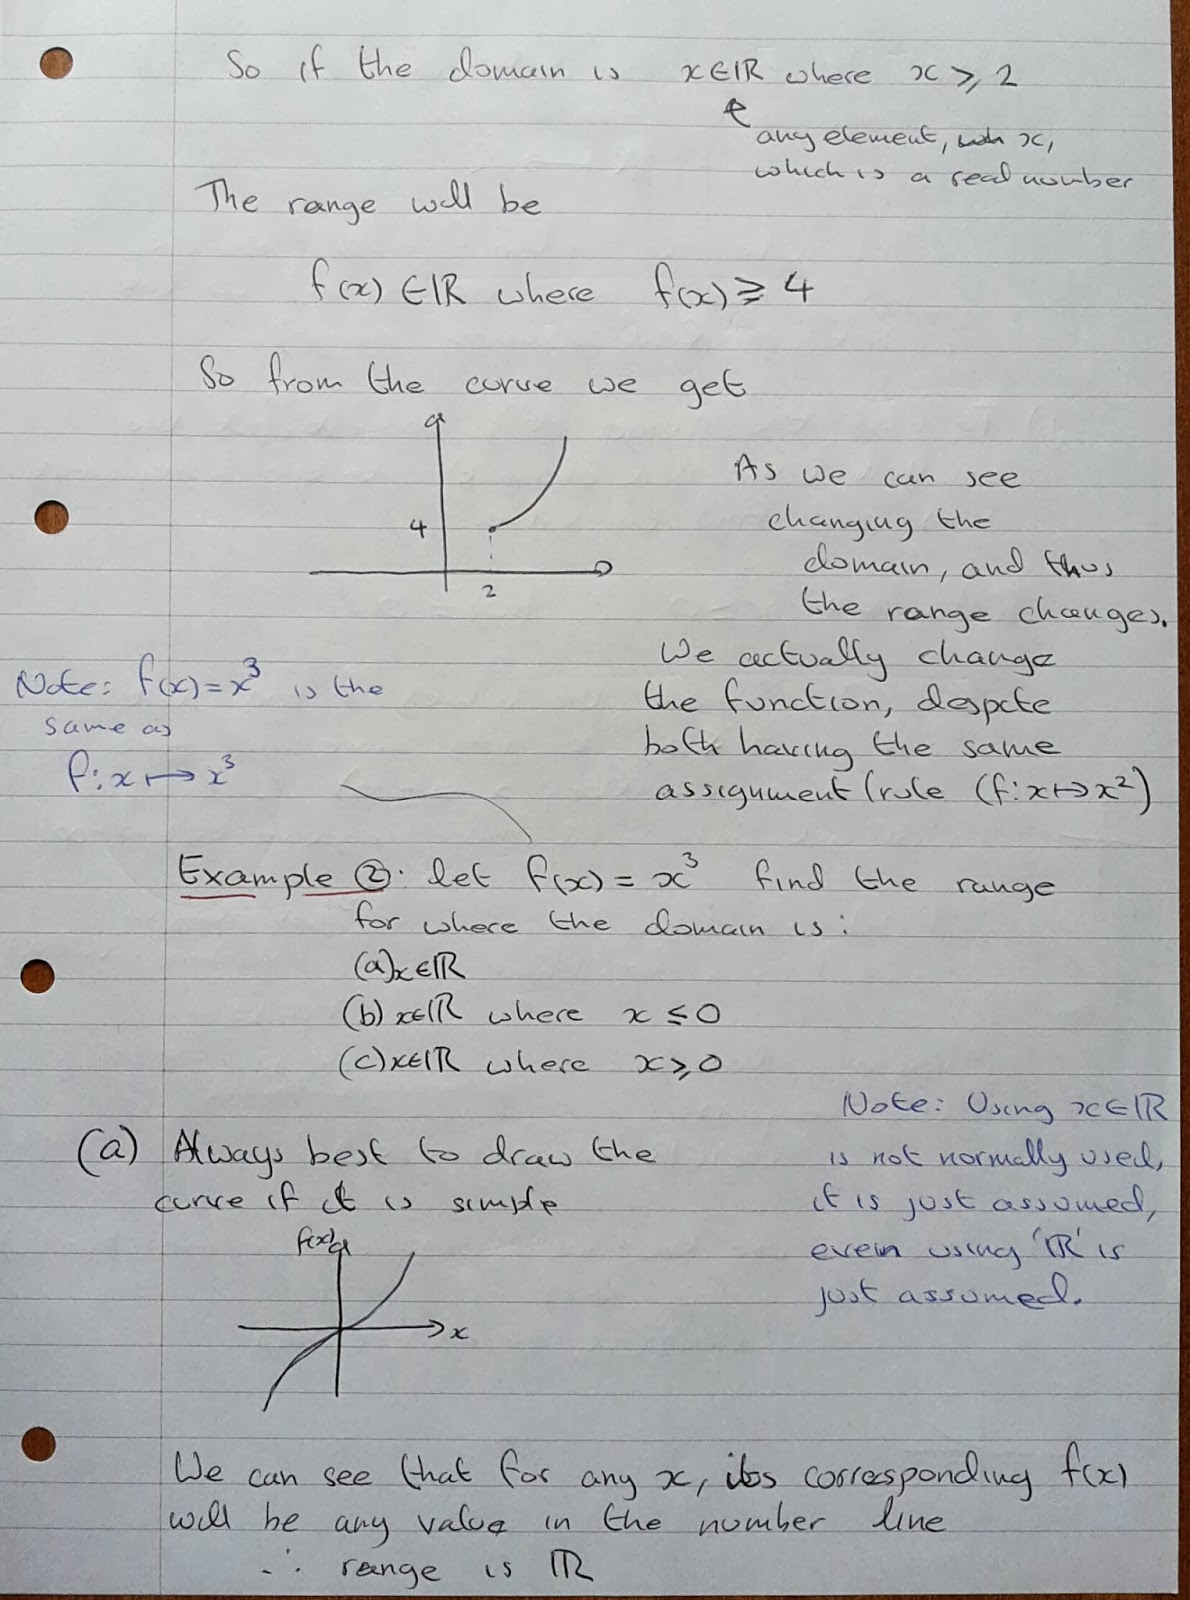 So if the domain is x∈ℝ where x ⩾ 2
any element, x,
which is a real number
The range will be
f(x) ∈ℝ where f(x) ⩾ 4
So from the curve we get
4
2
As we can see
changing the
domain, and thus
the range changes.
We actually change
the function, despite
both having the same
assignment/rule (f:x↦x²)
Note: f(x)=x³ is the
same as
f:x↦x³
Example ②: let f(x) = x³ find the range
for where the domain is:
(a) x∈ℝ
(b) x∈ℝ where x ⩽ 0
(c) x∈ℝ where x ⩾ 0
Note: Using x∈ℝ
is not normally used,
it is just assumed,
even using 'ℝ' is
just assumed.
(a) Always best to draw the
curve if it is simple
f(x)
x
We can see that for any x, its corresponding f(x)
will be any value in the number line
∴ range is ℝ